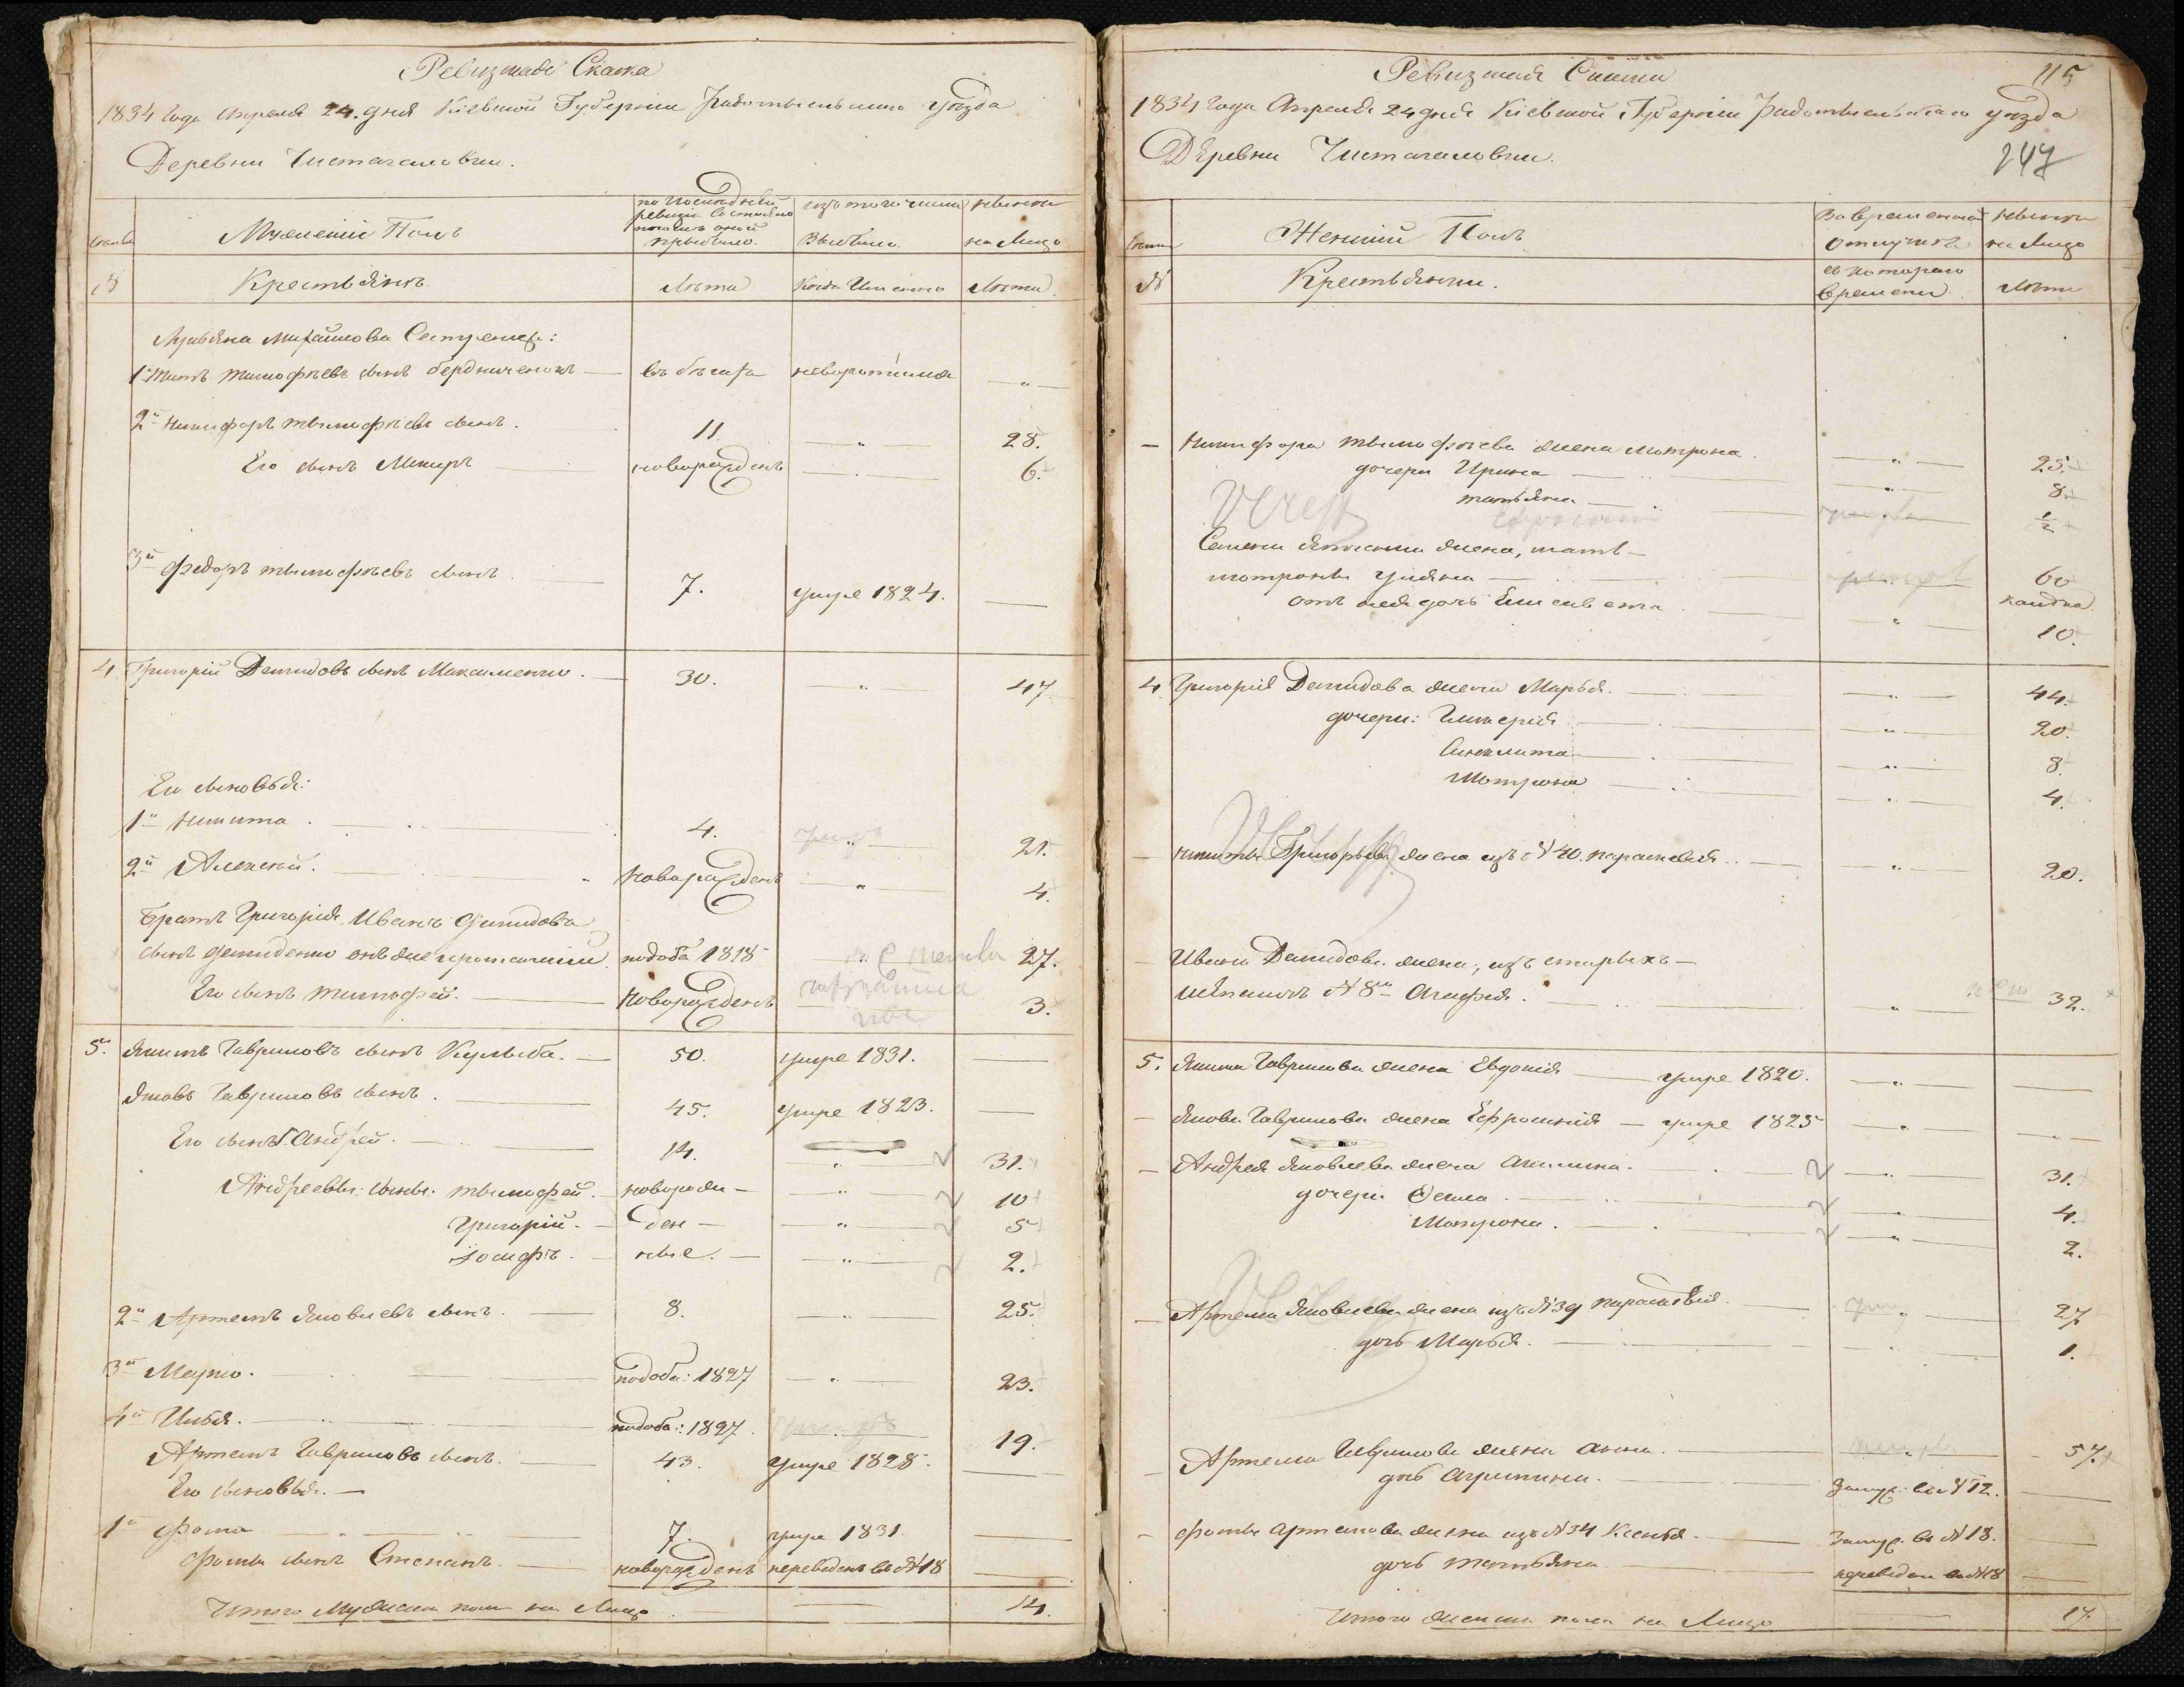 Ревизская Сказка
1834 Года Апреля 24. дня Кіевской Губерніи Радомысльскаго уѣзда
Деревни Чистагаловки.
Мужескій Полъ
по последней ревизіи состояло и после оной прибыло.
изъ того числа Выбыло.
ныне на Лицо
№
Крестьянъ.
Лѣта
Когда Именно
Лѣта
1й Титъ тимофѣевъ сынъ бердниченокъ — въ бѣгахъ — „ —
2й Никифоръ тимофѣевъ сынъ. 11 — „ — 28.
Его сынъ — новорожденъ — „ — 6.
3й Федоръ тимофѣевъ сынъ. — 7. умре 1824. —
4. Григорій Демидовъ сынъ Максименко. — 30. — „ — 47
Его сыновья:
1й Никита. — 4. — „ — 21.
2й Алексѣй. — Новорожденъ — „ — 4.
Братъ Григорія Иванъ Демидовъ
сынъ Демиденко онъ же 1818 27.
Его сынъ тимофей. — Новорожденъ 3.
5. Якимъ Гавриловъ сынъ Кулыба. — 50. умре 1831. —
Яковъ Гавриловъ сынъ. — 45. умре 1823. —
Его сынъ 1. Андрей. — 14. — „ — 31.
Андреевы: сыны: тимофей. — новорож — „ — 10
Григорій. — ден — „ — 5
Іосифъ. — ные. — „ — 2.
2й Артемъ Яковлевъ сынъ. — 8. — „ — 25.
3й Марко. — 1827 — „ — 23.
4й Илья. — 1827. 19.
Артемъ Гавриловъ сынъ. — 43. умре 1828. —
Его сыновья. —
1й Фома — 7. умре 1831. —
Фомы сынъ Степанъ. — новорожденъ переведенъ въ №18 —
Итого Мужеска пола на Лицо — 14.
Ревизская Сказка
115
1834 Года Апреля 24 дня Кіевской Губерніи Радомысльскаго уѣзда
Деревни Чистагаловки.
247
Женскій Полъ
Во временной отлучкѣ
ныне на Лицо
№
Крестьянки.
съ котораго времени
Лѣта
— Никифора тимофѣева жена мотрона. — „ — 25.
дочери Ирина — „ — 8.
татьяна — 1/2
жена, мать —
мотроны уляна — 60
отъ нея дочь Елисавета — „ — 10.
4. Григорія Демидова жена Марья. — „ — 44.
дочери: Гликерія — „ — 20.
Синклита — „ — 8.
Мотрона — „ — 4.
— Никиты Григорьева жена изъ №40. параскевія. — „ — 20.
— Ивана Демидова жена, изъ старыхъ —
№8й Агафія. — „ — 32.
5. Якима Гаврилова жена Евдокія — умре 1820. — „ —
— Якова Гаврилова жена Ефросинія — умре 1825 — „ —
— Андрея Яковлева жена Акилина. — „ — 31.
дочери Фекла. — 4.
Мотрона. — „ — 2.
— Артема Яковлева жена изъ №39 параскевія. — „ — 27
дочь Марья. — 1.
— Артема Гаврилова жена анна. — 57.
дочь агрипина. — Замуж: въ №12. —
— Фомы артемова жена изъ №34 Ксенья. — Замуж. въ №18. —
дочь татьяна — переведена въ №18 —
Итого женска пола на Лицо — 17.